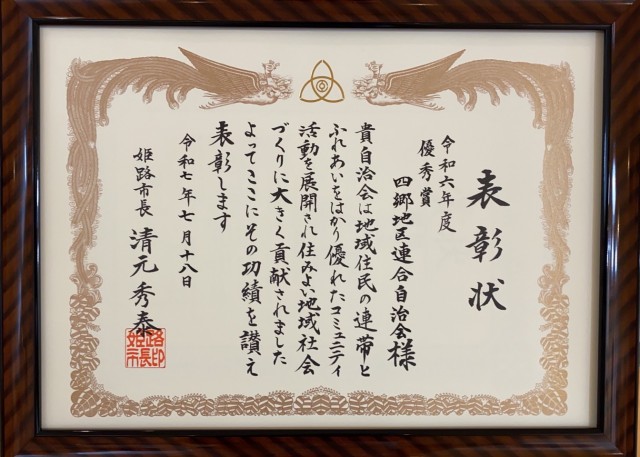 表彰状
令和六年度
優秀賞
四郷地区連合自治会様
貴自治会は地域住民の連帯と
ふれあいをはかり優れたコミュニティ
活動を展開され住みよい地域社会
づくりに大きく貢献されました
よってここにその功績を讃え
表彰します
令和七年七月十八日
姫路市長 清元秀泰
姫路市長印